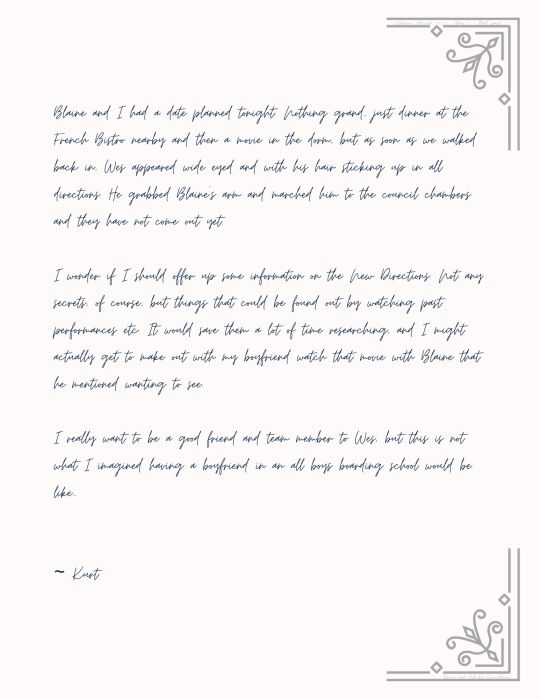 Blaine and I had a date planned tonight. Nothing grand, just dinner at the
French Bistro nearby and then a movie in the dorm, but as soon as we walked
back in, Wes appeared wide eyed and with his hair sticking up in all
directions. He grabbed Blaine's arm and marched him to the council chambers
and they have not come out yet.
I wonder if I should offer up some information on the New Directions. Not any
secrets, of course, but things that could be found out by watching past
performances etc. It would save them a lot of time researching, and I might
actually get to make out with my boyfriend watch that movie with Blaine that
he mentioned wanting to see.
I really want to be a good friend and team member to Wes, but this is not
what I imagined having a boyfriend in an all boys boarding school would be
like.
~ Kurt